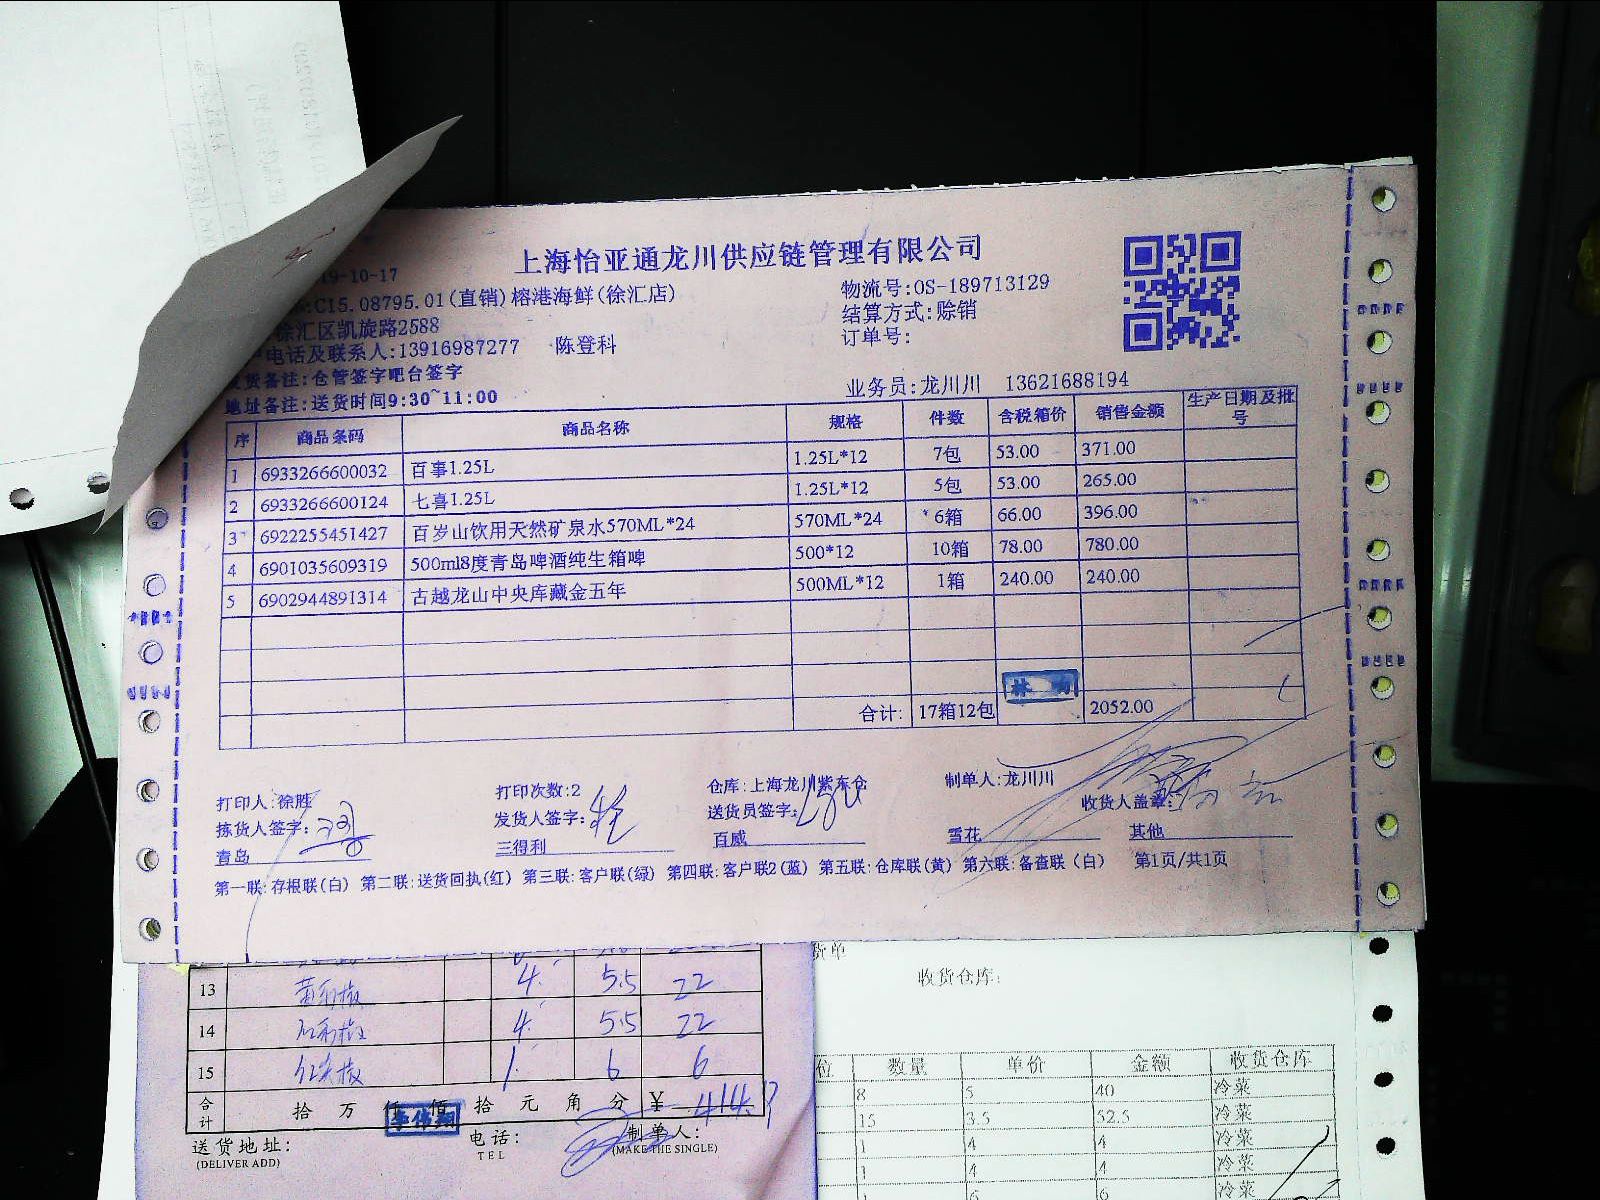 上海怡亚通龙川供应链管理有限公司
19-10-17
:C15.08795.01(直销)榕港海鲜(徐汇店)
物流号:OS-189713129
徐汇区凯旋路2588
结算方式:赊销
电话及联系人:13916987277 陈登科
订单号:
发货备注:仓管签字吧台签字
业务员:龙川川 13621688194
地址备注:送货时间9:30~11:00
序 商品条码 商品名称 规格 件数 含税箱价 销售金额 生产日期及批号
1 6933266600032 百事1.25L 1.25L*12 7包 53.00 371.00
2 6933266600124 七喜1.25L 1.25L*12 5包 53.00 265.00
3 6922255451427 百岁山饮用天然矿泉水570ML*24 570ML*24 6箱 66.00 396.00
4 6901035609319 500ml8度青岛啤酒纯生箱啤 500*12 10箱 78.00 780.00
5 6902944891314 古越龙山中央库藏金五年 500ML*12 1箱 240.00 240.00
合计: 17箱12包 2052.00
打印人:徐胜 打印次数:2 仓库:上海龙川紫东仓 制单人:龙川川
拣货人签字: 发货人签字: 送货员签字: 收货人盖章:
青岛 三得利 百威 雪花 其他
第一联:存根联(白) 第二联:送货回执(红) 第三联:客户联(绿) 第四联:客户联2(蓝) 第五联:仓库联(黄) 第六联:备查联(白) 第1页/共1页
13 4 5.5 22
14 4 5.5 22
15 1 6 6
合计 拾 万 仟 佰 拾 元 角 分 ¥ 414.
李伟翔
送货地址: 电话: 制单人:
(DELIVER ADD) TEL (MAKE THE SINGLE)
货单
收货仓库:
位 数量 单价 金额 收货仓库
8 5 40 冷菜
15 3.5 52.5 冷菜
1 4 4 冷菜
1 4 4 冷菜
1 6 6 冷菜